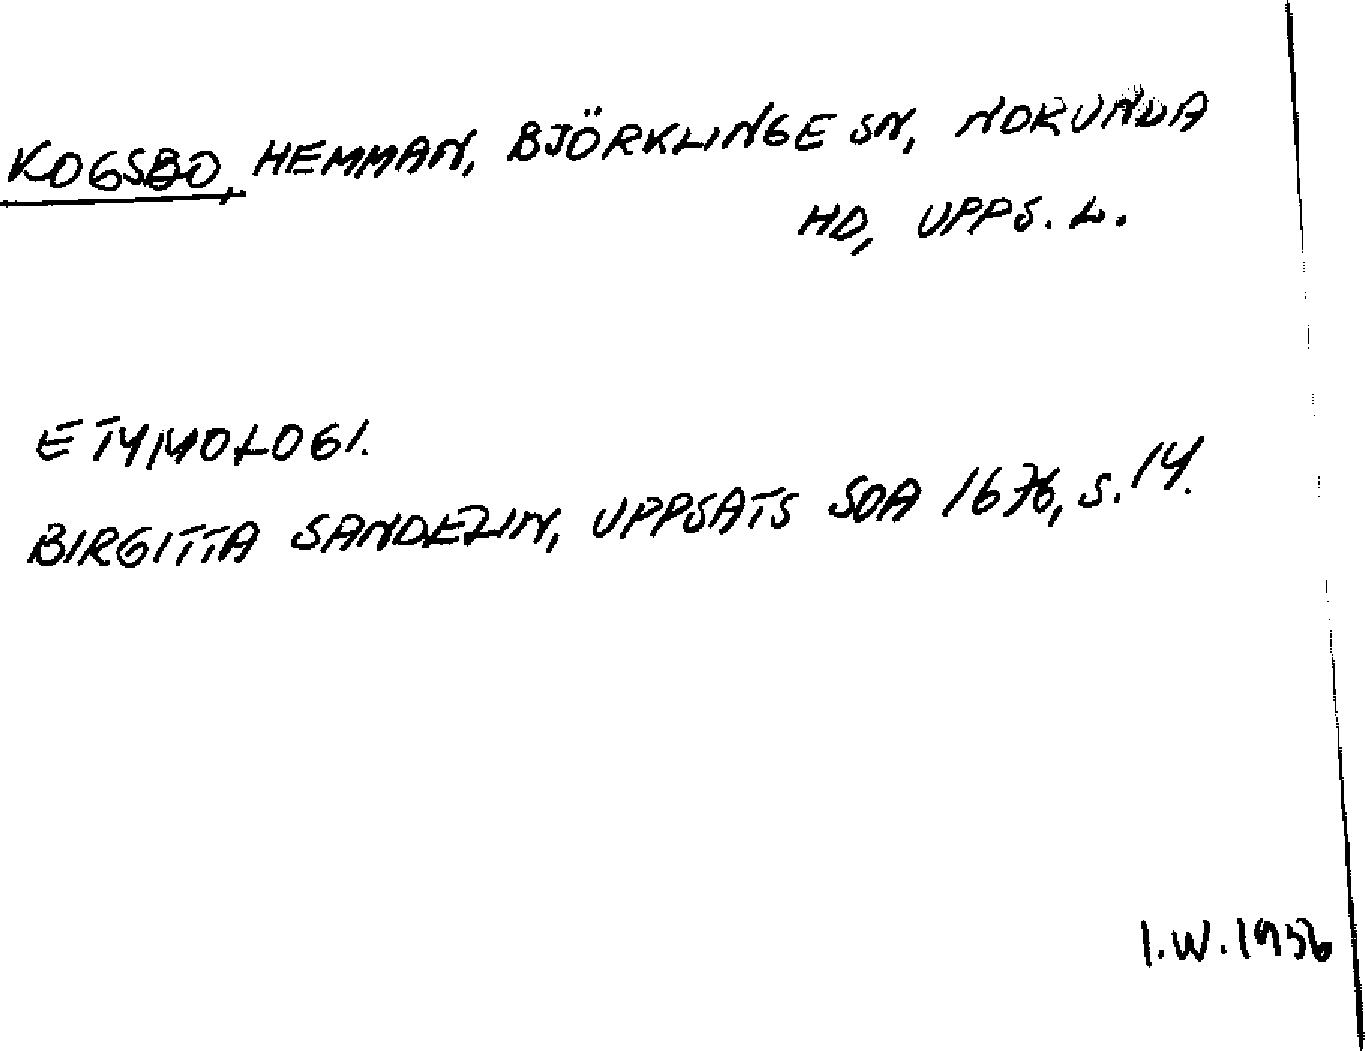 KOGSBO, HEMMAN, BJÖRKLINGE SN, NORUNDA
HD, UPPS. L.
ETYMOLOGI.
BIRGITTA SANDELIN, UPPSATS SOA 1676, S. 14.
I.W. 1956